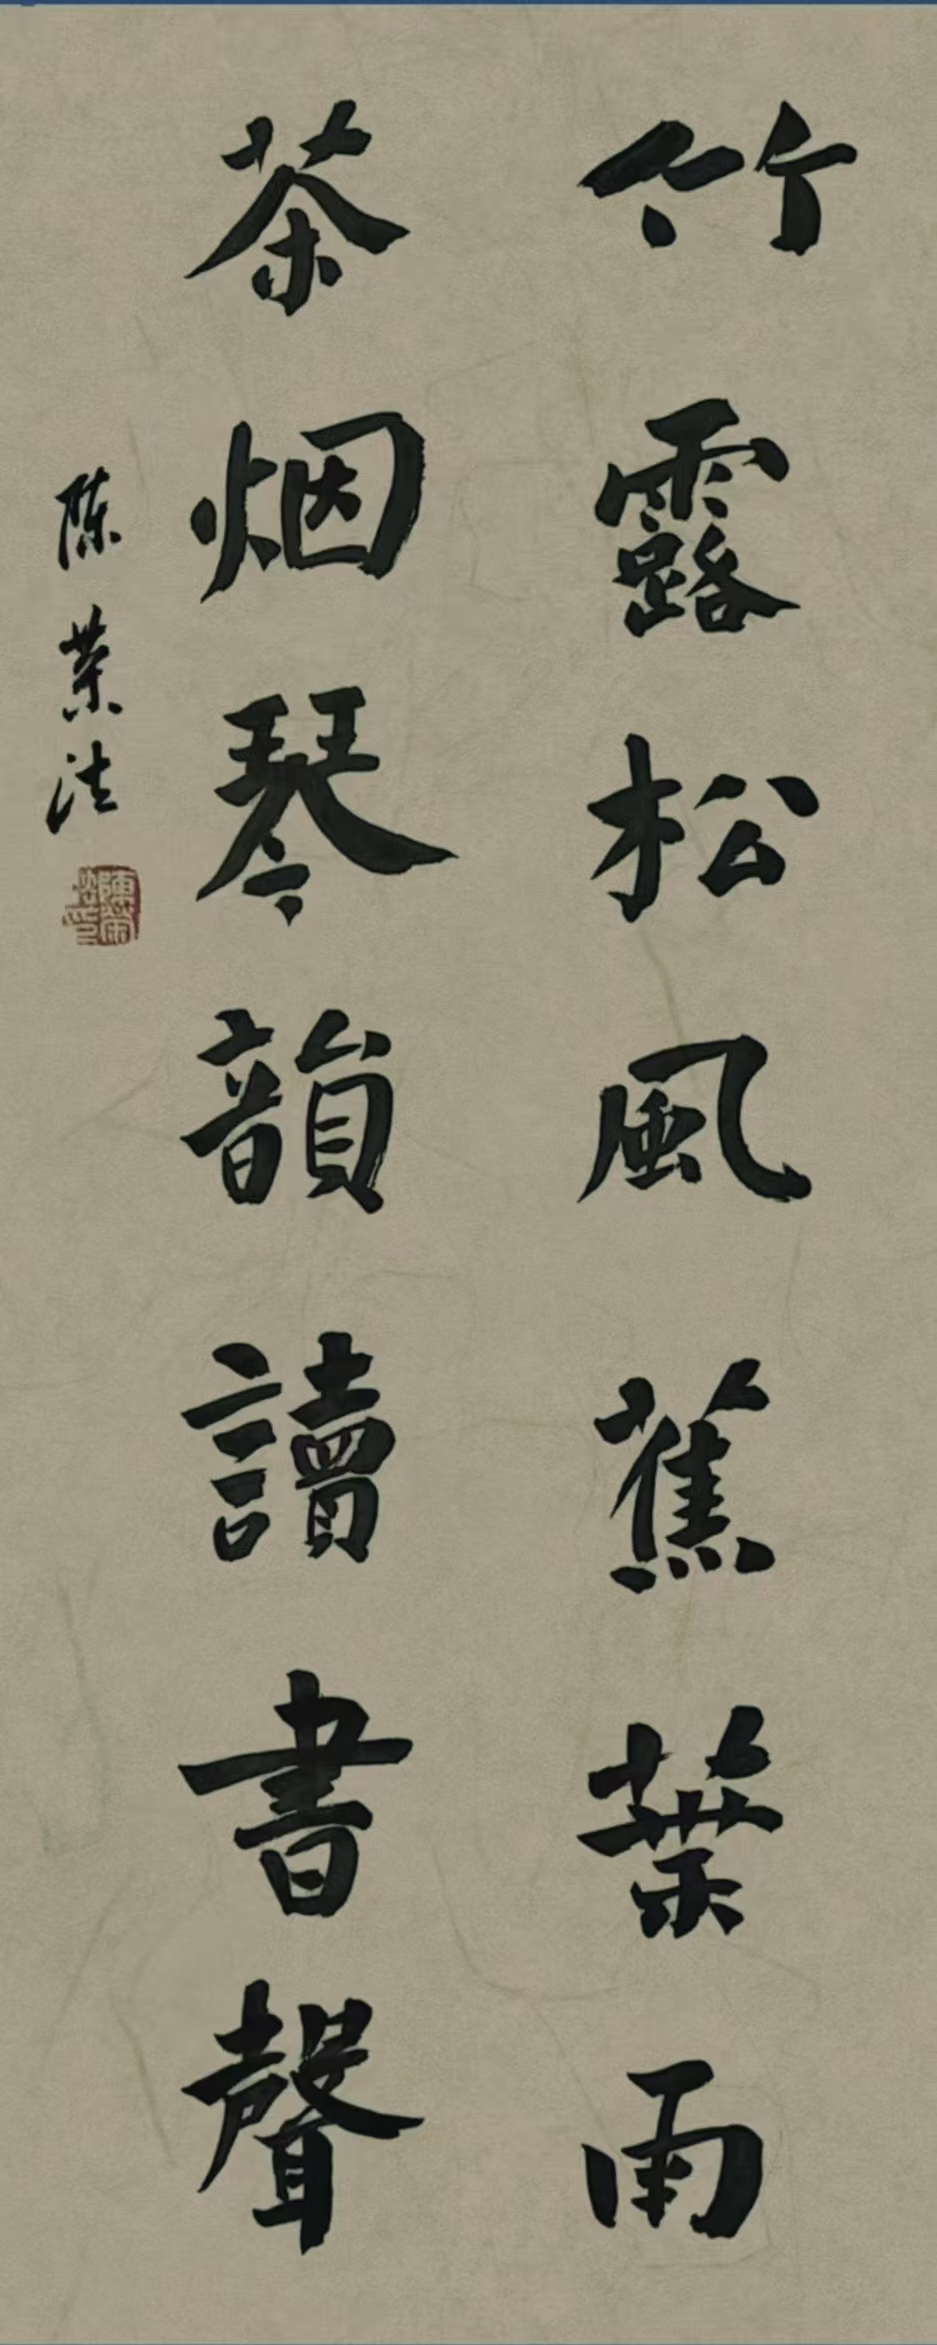 竹露松風蕉葉雨
茶烟琴韻讀書聲
陈荣法